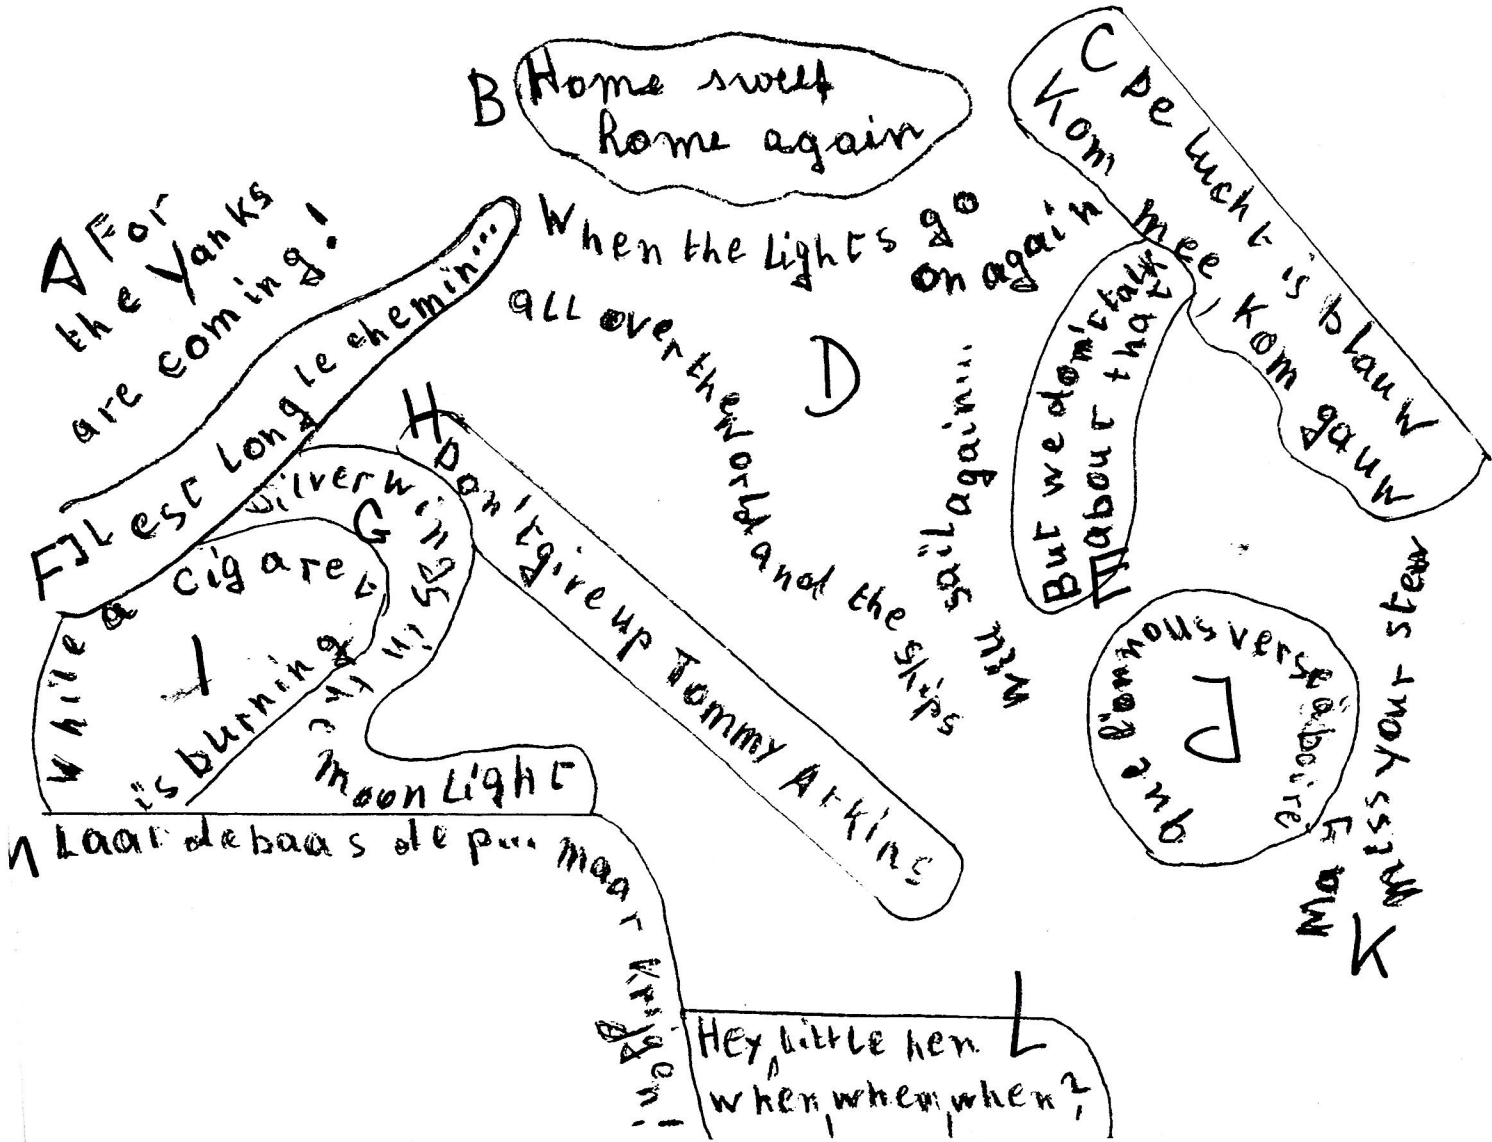 A For
the Yanks
are coming!
B Home sweet
home again
C De lucht is blauw
Kom mee, kom gauw
D
When the lights go
on again
all over the world and the ships
sail again...
E
But we don't talk
about that
F Il est long le chemin...
G
Silver wings in the moonlight
H Don't give up Tommy Atkins
I
While a cigaret
is burning
J
que l'on nous verse à boire
K
Ma
I miss your stew
L
Hey, little hen
when, when, when?
n Laar de baas de p... maar krijgen!